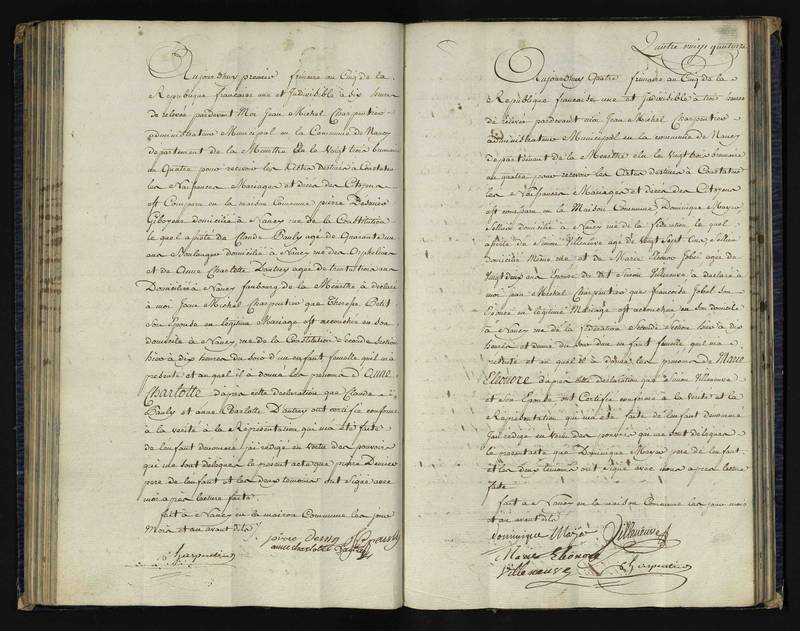 Aujourdhuy premier frimaire an Cinq de la
Republique francaise une et Indivisible à dix heures
de relevée pardevant Moi Jean Michel Charpentier
administrateur Municipal de la Commune de Nancy
departement de la Meurthe élu le vingt trois brumaire
an Quatre pour recevoir les Actes destinés à Constater
les Naissances Mariages et deces des Citoyens
est Comparu en la maison Commune pierre
domicilié à Nancy rue de la Constitution
lequel assisté de Claude Pauly agé de Quarante un
ans Boulanger domicilié à Nancy rue des Orphelines
et de Anne Charlotte agée de trente trois ans
Domiciliée à Nancy faubourg de la Meurthe à déclaré
à moi Jean Michel Charpentier que Therese Petit
Son Epouse en légitime Mariage est accouchée en son
domicile à Nancy rue de la Constitution Seconde Section
hier à dix heures du soir d'un enfant femelle qu'il m'a
présenté et au quel il a donné les prenoms d'Anne
Charlotte d'après cette déclaration que Claude
Pauly et anne Charlotte ont certifié conforme
à la vérité à la Représentation qui m'a été faite
de l'enfant denommé j'ai rédigé en vertu des pouvoirs
qui me sont delegués le présent acte que pierre
pere de l'enfant et les deux temoins ont Signé avec
moi apres lecture faite
fait à Nancy en la maison Commune les jour
Mois et an avant dits
pierre
anne charlotte
Charpentier
Quatre vingt quinze
Aujourdhuy Quatre frimaire an Cinq de la
Republique francaise une et Indivisible à trois heures
de relevée pardevant moi Jean Michel Charpentier
administrateur Municipal en la commune de Nancy
departement de la Meurthe élu le vingt trois brumaire
an quatre pour recevoir les actes destinés à Constater
les Naissances Mariages et deces des Citoyens
est comparu en la Maison Commune Dominique
Sellier domicilié à Nancy rue de la fédération lequel
assisté de Simon Villeneuve agé de Vingt Sept ans Sellier
domicilié Même rue et de Marie Eleonore agée de
Vingt deux ans Epouse du dit Simon Villeneuve à déclaré à
moi jean Michel Charpentier que francoise Jobel Son
Epouse en légitime Mariage est accouchée en son domicile
à Nancy rue de la fédération Seconde Section hier à dix
heures et demi du soir d'un enfant femelle qu'il m'a
présenté et au quel il a donné les prenoms de Marie
Eleonore d'apres cette déclaration que Simon Villeneuve
et Son Epouse ont Certifié conforme à la vérité et la
Représentation qui m'a été faite de l'enfant denommé
j'ai rédigé en vertu des pouvoirs qui me sont delegués
le présent acte que Dominique pere de l'enfant
et les deux temoins ont signé avec nous apres lecture
faite
fait à Nancy en la maison Commune les jour mois
et an avant dits
Dominique Villeneuve
Marie Eleonore
Villeneuve Charpentier